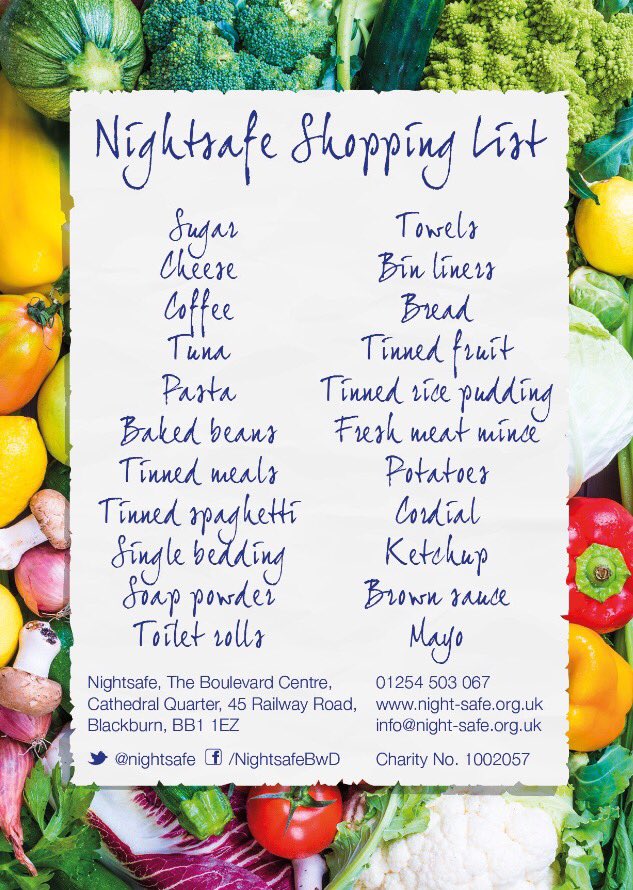 Nightsafe Shopping List
Sugar
Cheese
Coffee
Tuna
Pasta
Baked beans
Tinned meals
Tinned spaghetti
Single bedding
Soap powder
Toilet rolls
Towels
Bin liners
Bread
Tinned fruit
Tinned rice pudding
Fresh meat mince
Potatoes
Cordial
Ketchup
Brown sauce
Mayo
Nightsafe, The Boulevard Centre,
Cathedral Quarter, 45 Railway Road,
Blackburn, BB1 1EZ
@nightsafe f /NightsafeBwD
01254 503 067
www.night-safe.org.uk
info@night-safe.org.uk
Charity No. 1002057